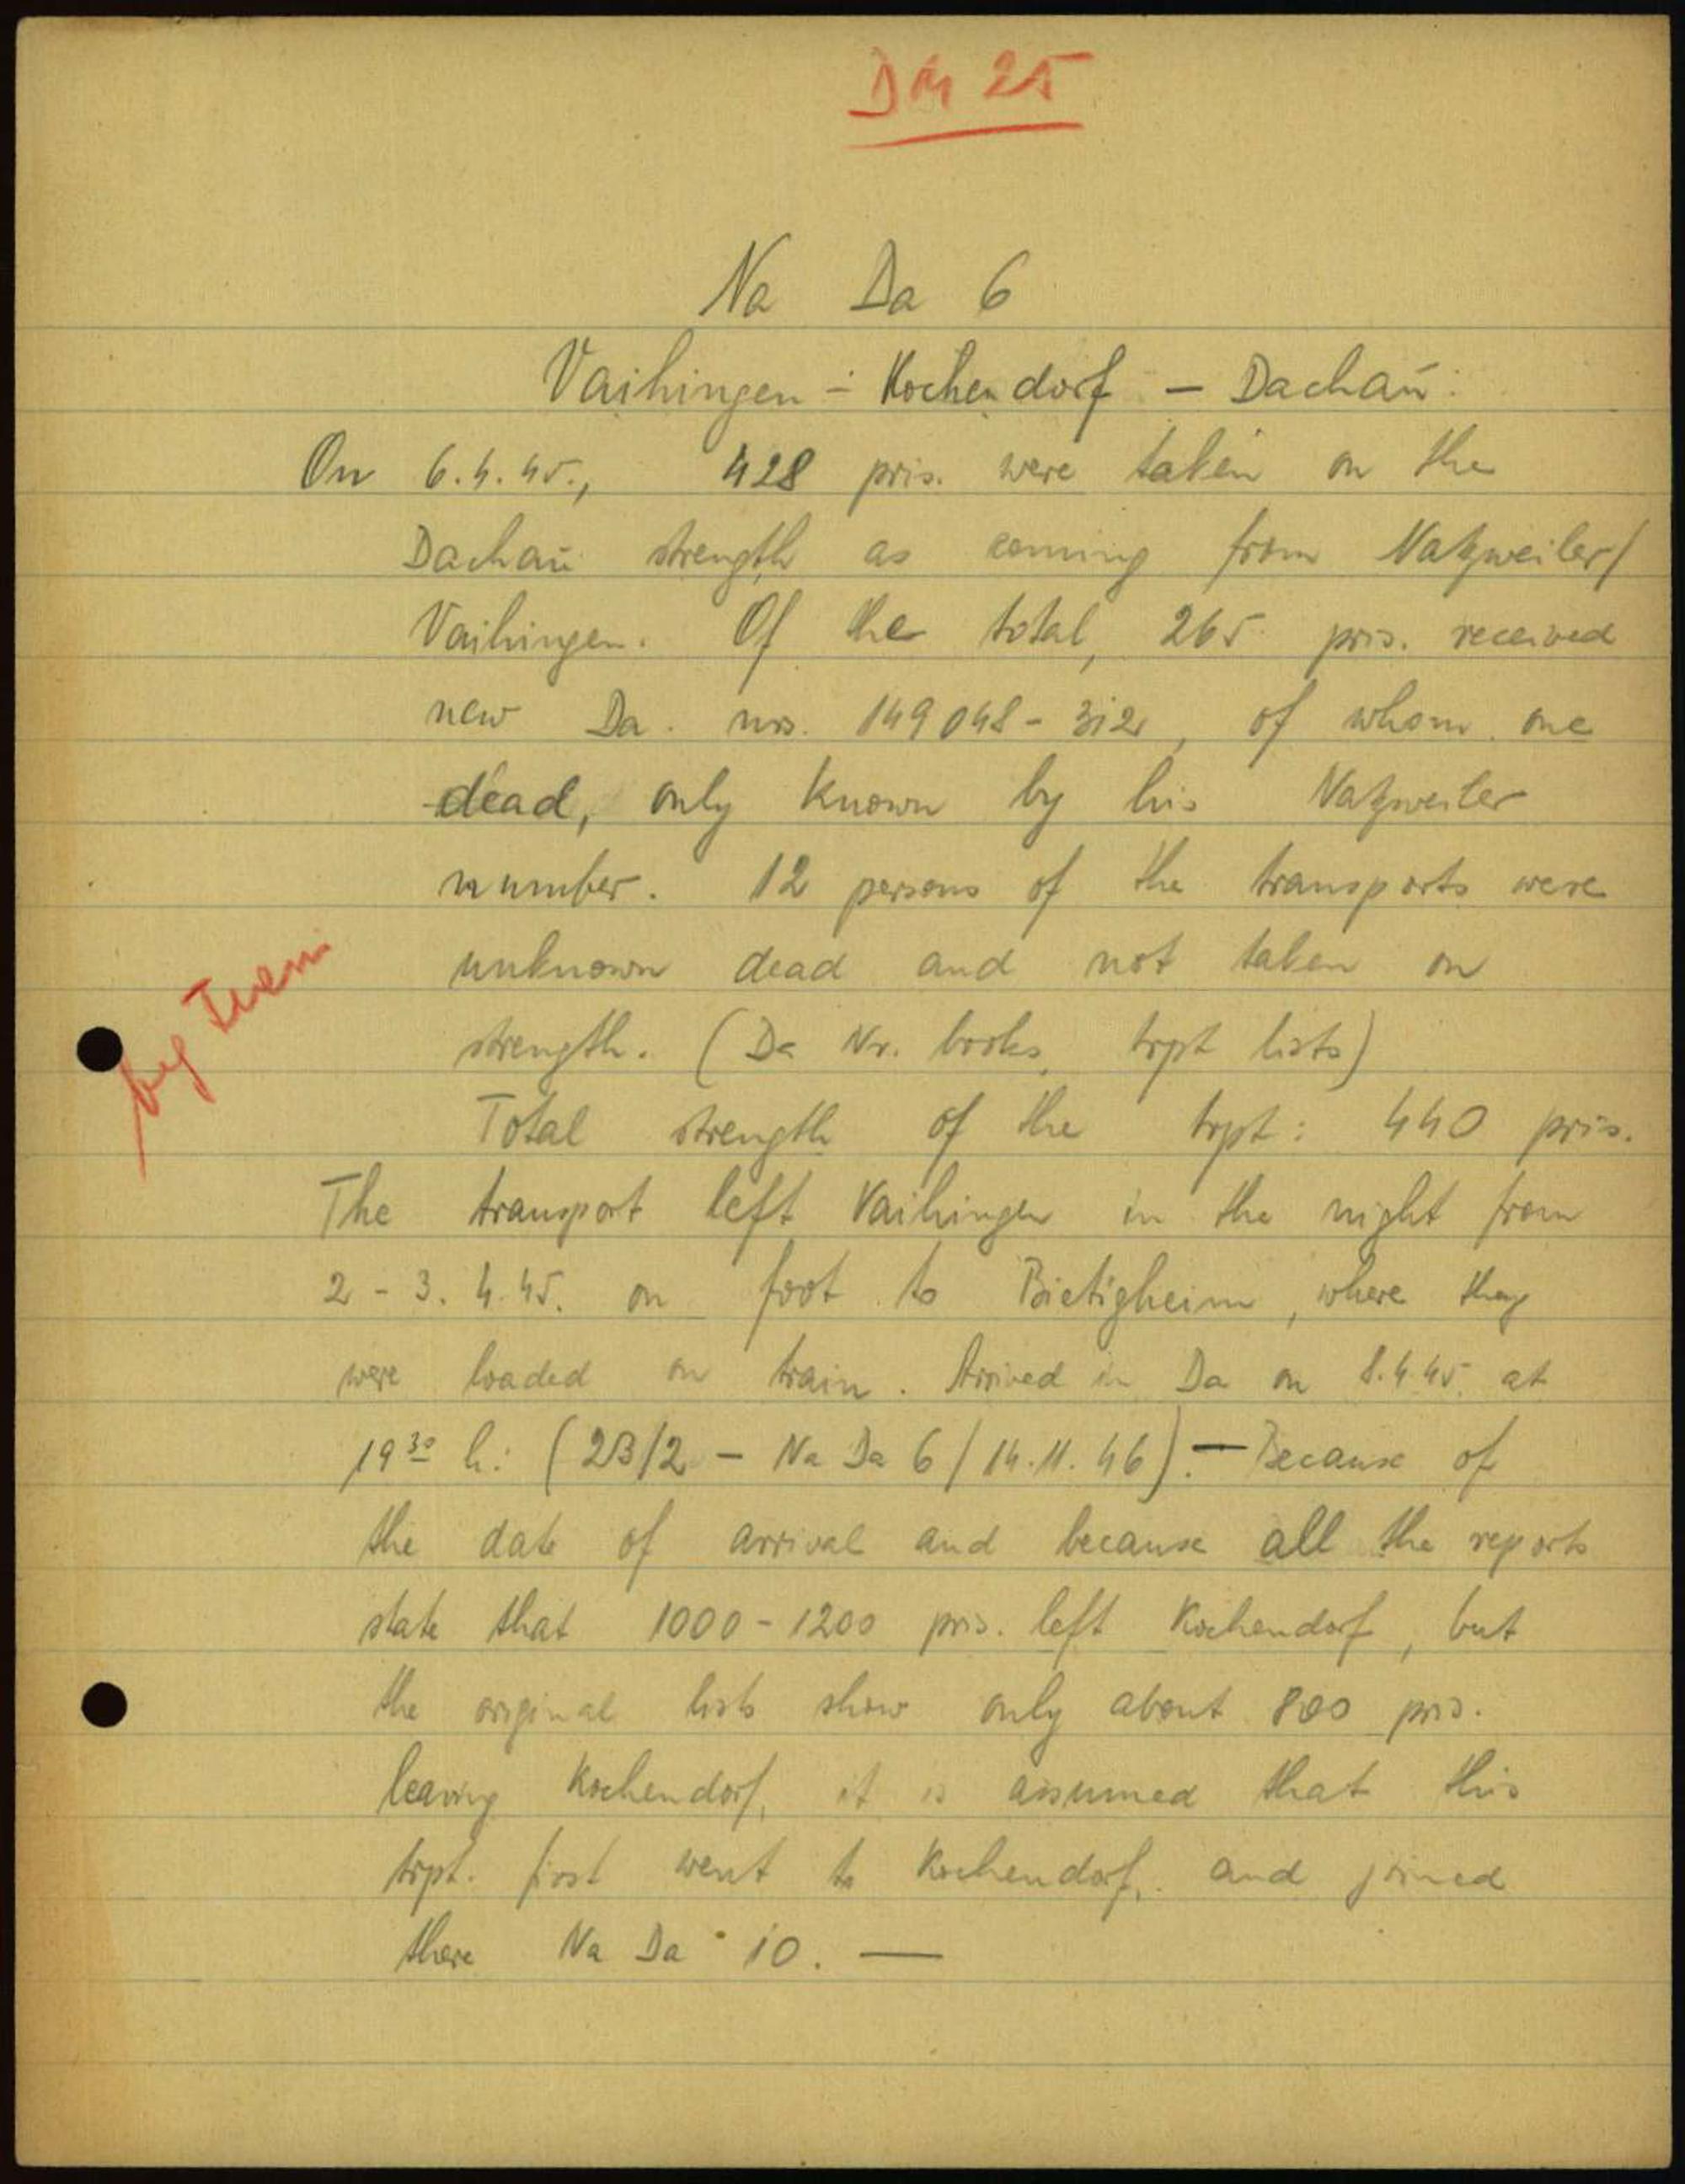 DM 25
Na Da 6
Vaihingen - Kochendorf - Dachau:
On 6.4.45., 428 pris. were taken on the
Dachau strength as coming from Natzweiler/
Vaihingen. Of the total, 265 pris. received
new Da. nrs. 149048 - 312, of whom one
dead, only known by his Natzweiler
number. 12 persons of the transports were
unknown dead and not taken on
by Train
strength. (Da Nr. books, trpt lists)
Total strength of the trpt: 440 pris.
The transport left Vaihingen in the night from
2 - 3. 4. 45. on foot to Bietigheim, where they
were loaded on train. Arrived in Da on 8.4.45. at
19 30 h: (23/2 - Na Da 6 / 14.11.46). - Because of
the date of arrival and because all the reports
state that 1000 - 1200 pris. left Kochendorf, but
the original lists show only about 800 pris.
leaving Kochendorf, it is assumed that this
trpt. first went to Kochendorf, and joined
there Na Da 10. —